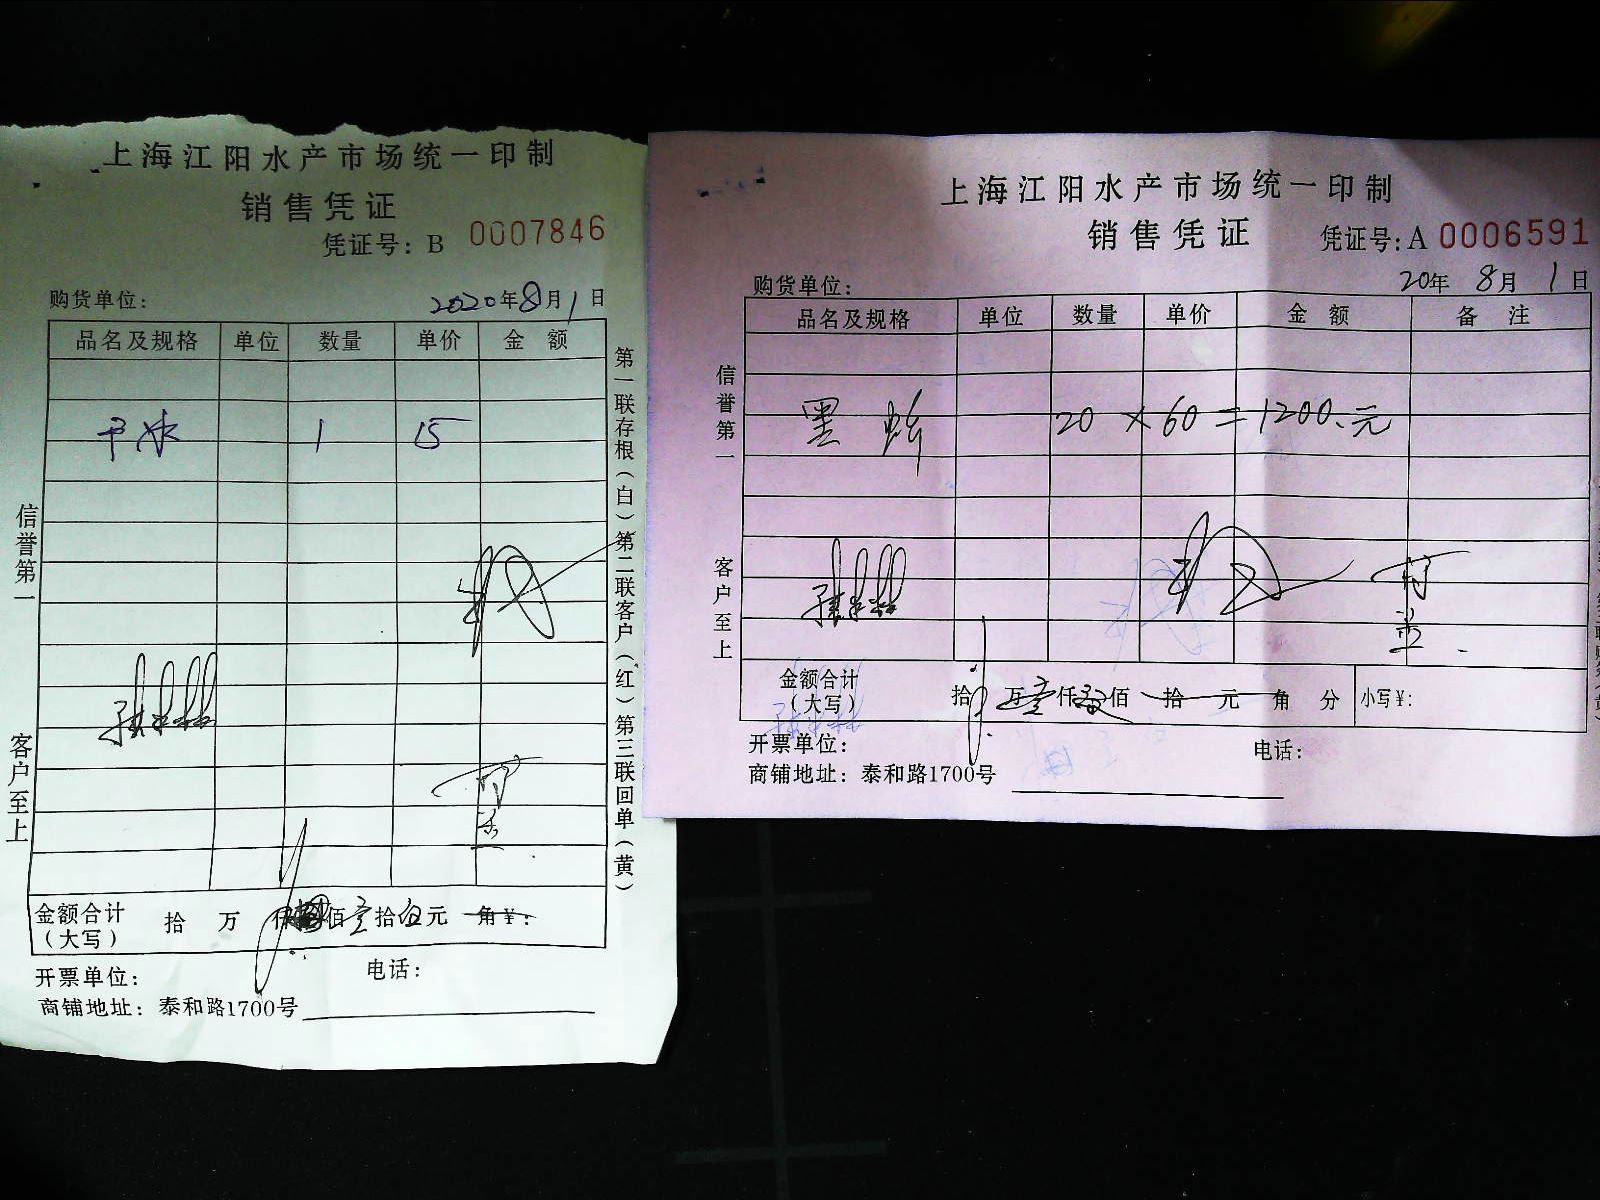 上海江阳水产市场统一印制
销售凭证
凭证号：B 0007846
购货单位： 2020年8月1日
品名及规格 单位 数量 单价 金额
干冰 1 15
信誉第一 客户至上
第一联存根（白）第二联客户（红）第三联回单（黄）
金额合计（大写） 拾 万 仟 佰壹拾伍元 角￥：
开票单位： 电话：
商铺地址：泰和路1700号
上海江阳水产市场统一印制
销售凭证
凭证号：A 0006591
购货单位： 20年8月1日
品名及规格 单位 数量 单价 金额 备注
黑 20×60=1200.元
信誉第一 客户至上
金额合计（大写） 拾 万壹仟贰佰 拾 元 角 分 小写￥：
开票单位： 电话：
商铺地址：泰和路1700号